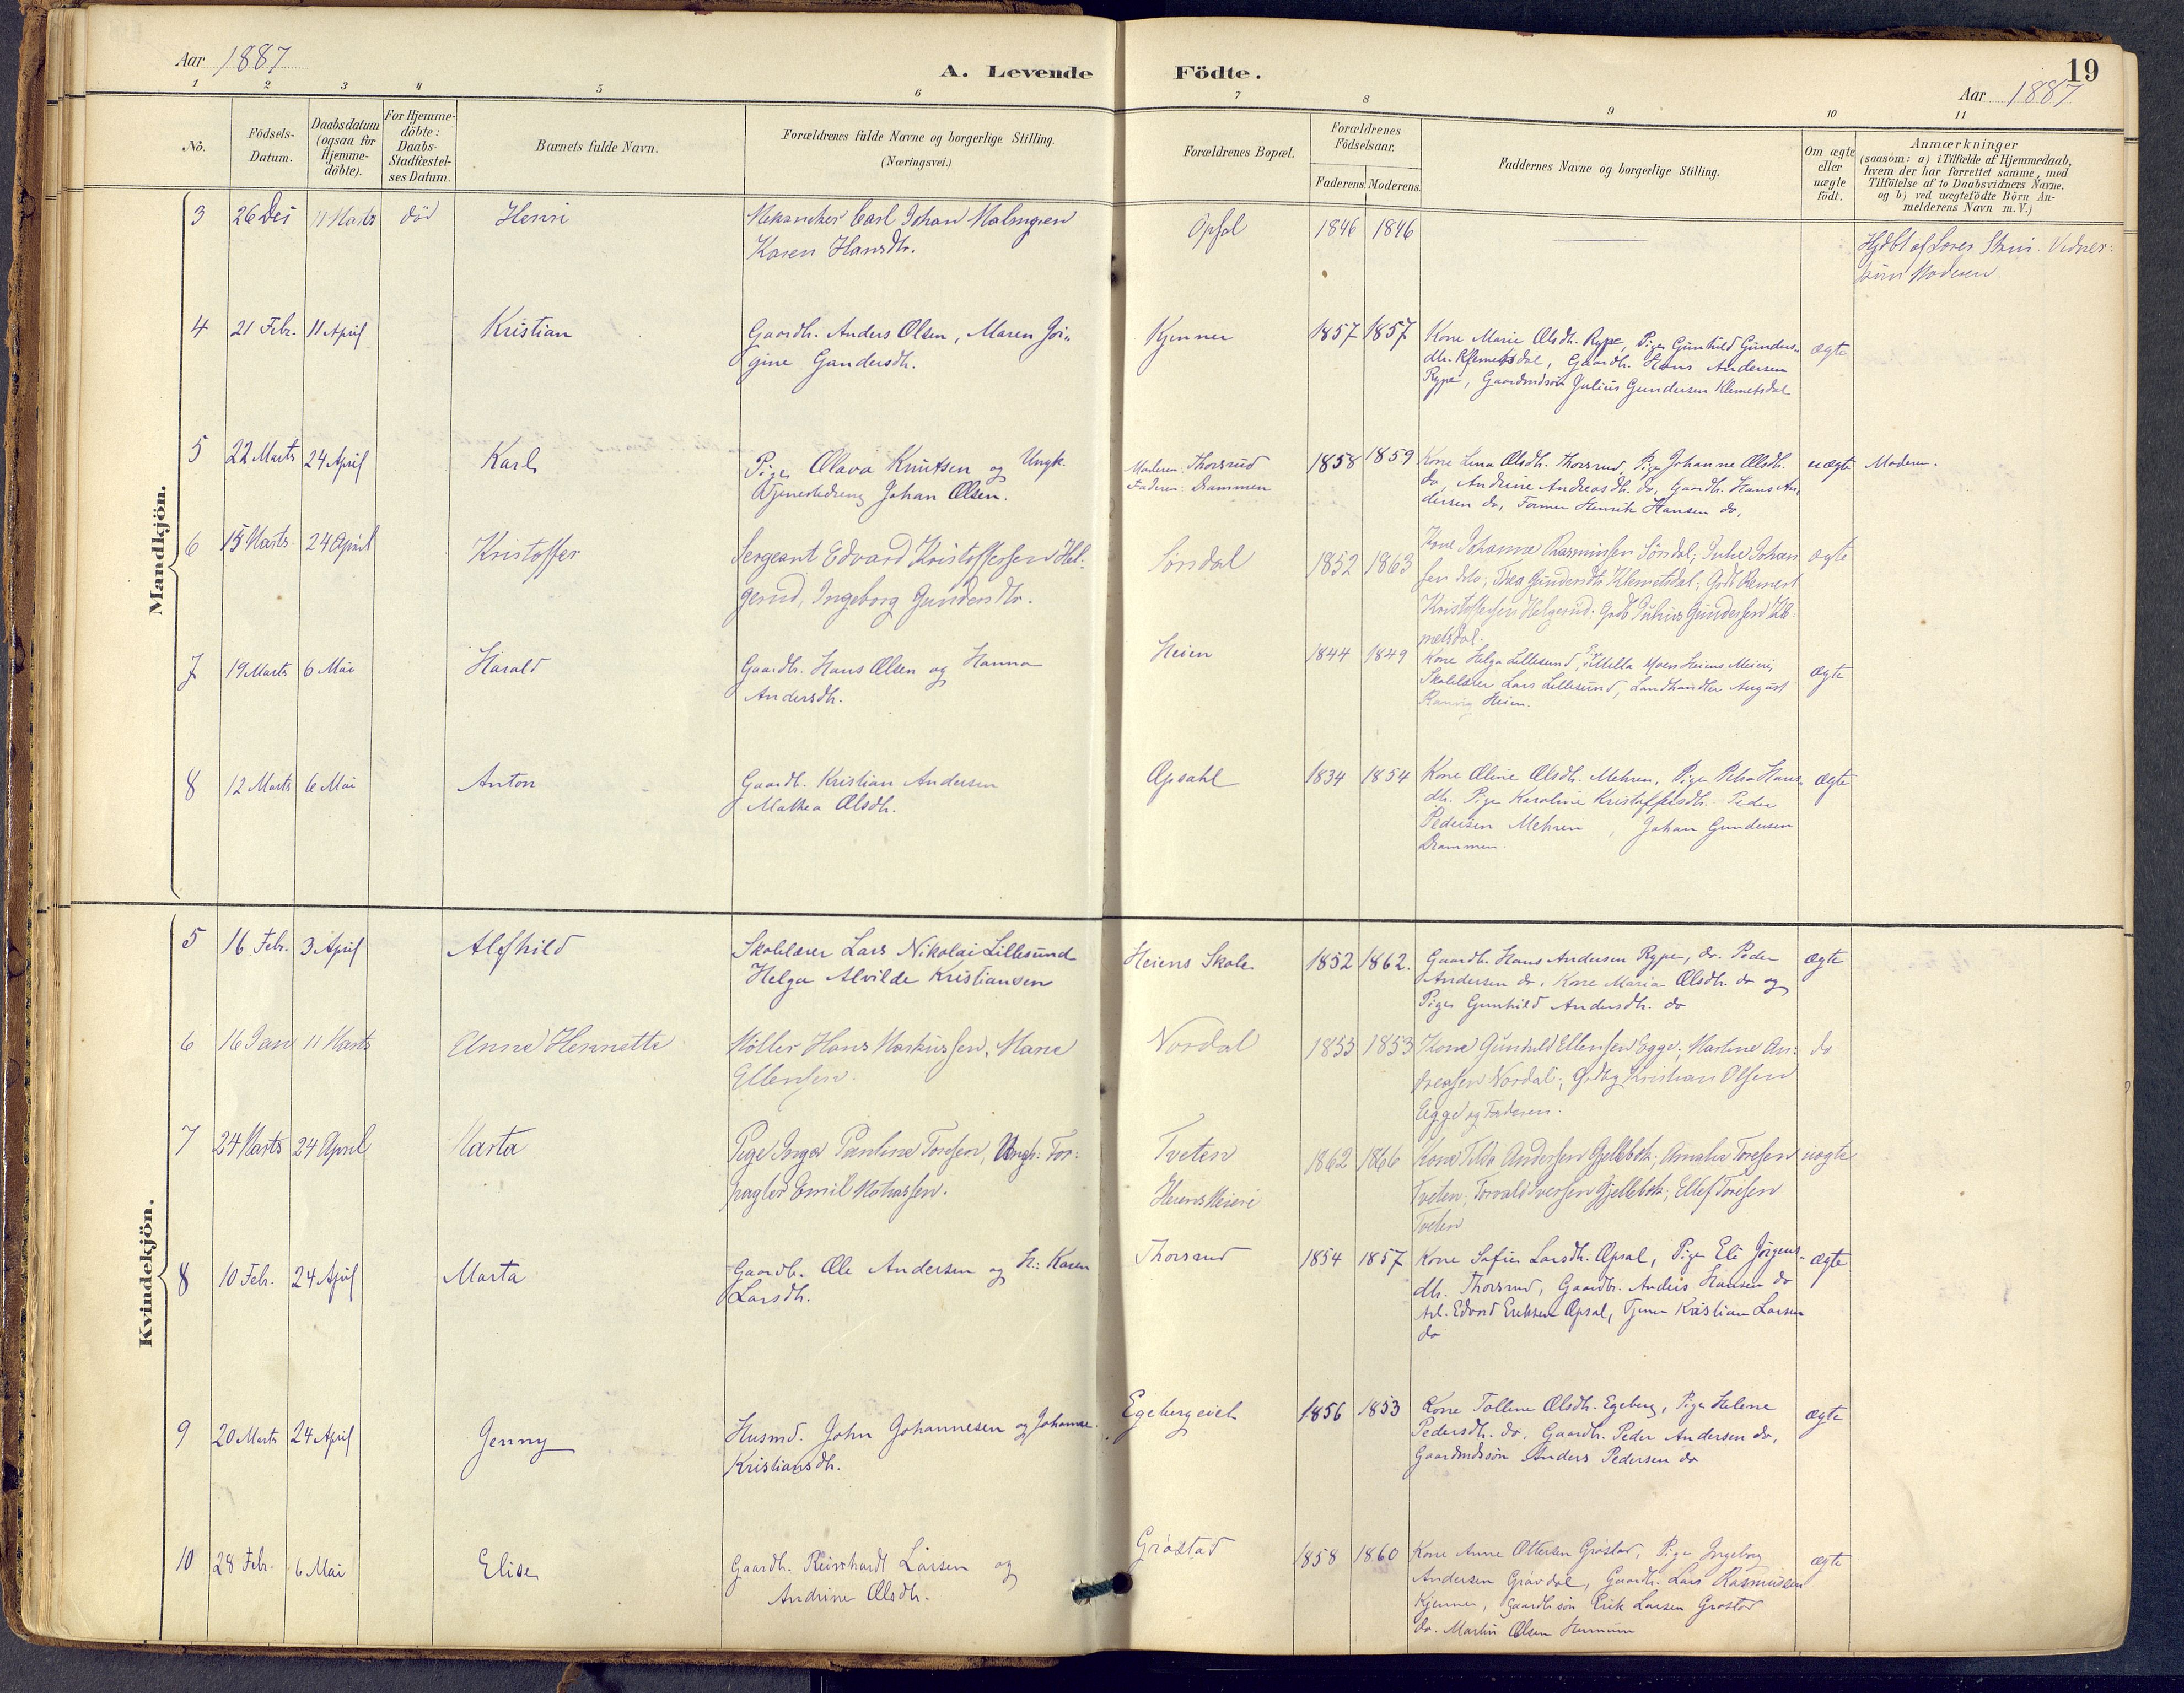 Aar 1887
A. Levende Födte.
19
Aar 1887
1 2 3 4 5 6 7 8 9 10 11
No.
Födsels-Datum.
Daabsdatum (ogsaa for Hjemme-döbte).
For Hjemme-döbte: Daabs-Stadfæstel-ses Datum.
Barnets fulde Navn.
Forældrenes fulde Navne og borgerlige Stilling.
(Næringsvei.)
Forældrenes Bopæl.
Forældrenes Födselsaar.
Faderens. Moderens.
Faddernes Navne og borgerlige Stilling.
Om ægte eller uægte födt.
Anmærkninger
(saasom: a) i Tilfælde af Hjemmedaab,
hvem der har forrettet samme, med
Tilföielse af to Daabsvidners Navne.
og b) ved uægtefödte Börn An-
melderens Navn m.V.)
Mandkjön.
3 26 Des 11 Marts död Henri
Mekaniker Carl Johan Malmgren
Karen Hansdtr.
Opsal 1846 1846
Moderen.
4 21 Febr. 11 April Kristian
Gaardb. Anders Olsen, Maren Jör-
gine Gundersdtr.
Kjenner 1857 1857
Kone Marie Olsdtr. Rype, Pige Gunhild Gunders-
dtr. Klemetsdal, Gaardb. Hans Andersen
Rype, Gaardmdsön Julius Gundersen Klemetsdal
ægte
5 22 Marts 24 April Karl
Pige Olava Knutsen og Ungk.
Johan Olsen.
Moderen: Thorsrud
Faderen: Drammen
1858 1859
Kone Lina Olsdtr. Thorsrud, Pige Johanne Olsdtr.
do, Andrine Andreasdtr. do, Gaardb. Hans An-
dersen do, Former Henrik Hansen do,
uægte Moderen.
6 15 Marts 24 April Kristoffer
Sergeant Edvard Kristoffersen Hel-
gerud, Ingeborg Gundersdtr.
Sörsdal 1852 1863
Kone Johanne Rasmussen Sörsdal; Julie Johan
sen do; Thea Gundersdtr Klemetsdal; Gdb Reinert
Kristoffersen Helgerud. Gdb Julius Gundersen Kle-
metsdal.
ægte
7 19 Marts 6 Mai Harald
Gaardb. Hans Olsen og Hanna
Andersdtr.
Heien 1844 1849
Kone Helga Lillesund, Pige Mella Moen Heiens Meieri,
Skolelærer Lars Lillesund, Landhandler August
Heien.
ægte
8 12 Marts 6 Mai Anton
Gaardb. Kristian Andersen
Mathea Olsdtr.
Opsahl 1834 1854
Kone Oline Olsdtr. Mehren, Pige Petra Hans-
dtr. Pige Karoline Kristoffersdtr. Peder
Pedersen Mehren, Johan Gundersen
Drammen.
ægte
Kvindekjön.
5 16 Febr. 3 April Alfhild
Skolelærer Lars Nikolai Lillesund
Helga Alvilde Kristiansen
Heiens Skole 1852 1862.
Gaardb. Hans Andersen Rype, do. Peder
Andersen do, Kone Maria Olsdtr. do og
Pige Gunhild Andersdtr. do
ægte
6 16 Jan 11 Marts Anna Henriette
Möller Hans Markussen, Marie
Ellensen.
Nordal 1853 1853
Kone Gunhild Ellensen Egge; Martine An-
dreasen Nordal; Gdbg Kristian Olsen
Egge og Faderen.
do
7 24 Marts 24 April Marta
Pige Inga Pauline Toresen, Ungk. For-
pagter Emil Mathissen.
Tveten
Heiens Meieri
1862 1866
Kone Tilda Andersen Gjellebek; Amalie Toresen
Tveten; Torvald Iversen Gjellebek; Ellef Toresen
Tveten
uægte
8 10 Febr. 24 April Marta
Gaardb. Ole Andersen og H: Karen
Larsdtr.
Thorsrud 1854 1857
Kone Sofie Larsdtr. Opsal, Pige Eli Jörgens-
dtr. Thorsrud, Gaardbr. Anders Hansen do
Arb. Edvard Eriksen Opsal, Tjener Kristian Larsen
do
ægte
9 20 Marts 24 April Jenny
Husmd. John Johannesen og Johanne
Kristiansdtr.
Egebergeiet 1856 1853
Kone Tolline Olsdtr. Egeberg, Pige Helene
Pedersdtr. do, Gaardb. Peder Andersen do,
Gaardmdssön Anders Pedersen do
ægte
10 28 Febr. 6 Mai Elise
Gaardb. Reinhardt Larsen og
Andrine Olsdtr.
Gröstad 1858 1860
Kone Anne Ottersen Gröstad, Pige Ingeborg
Andersen Grövdal, Gaardb. Lars Rasmussen
Kjenner, Gaardb.sön Erik Larsen Gröstad
do. Martin Olsen
ægte